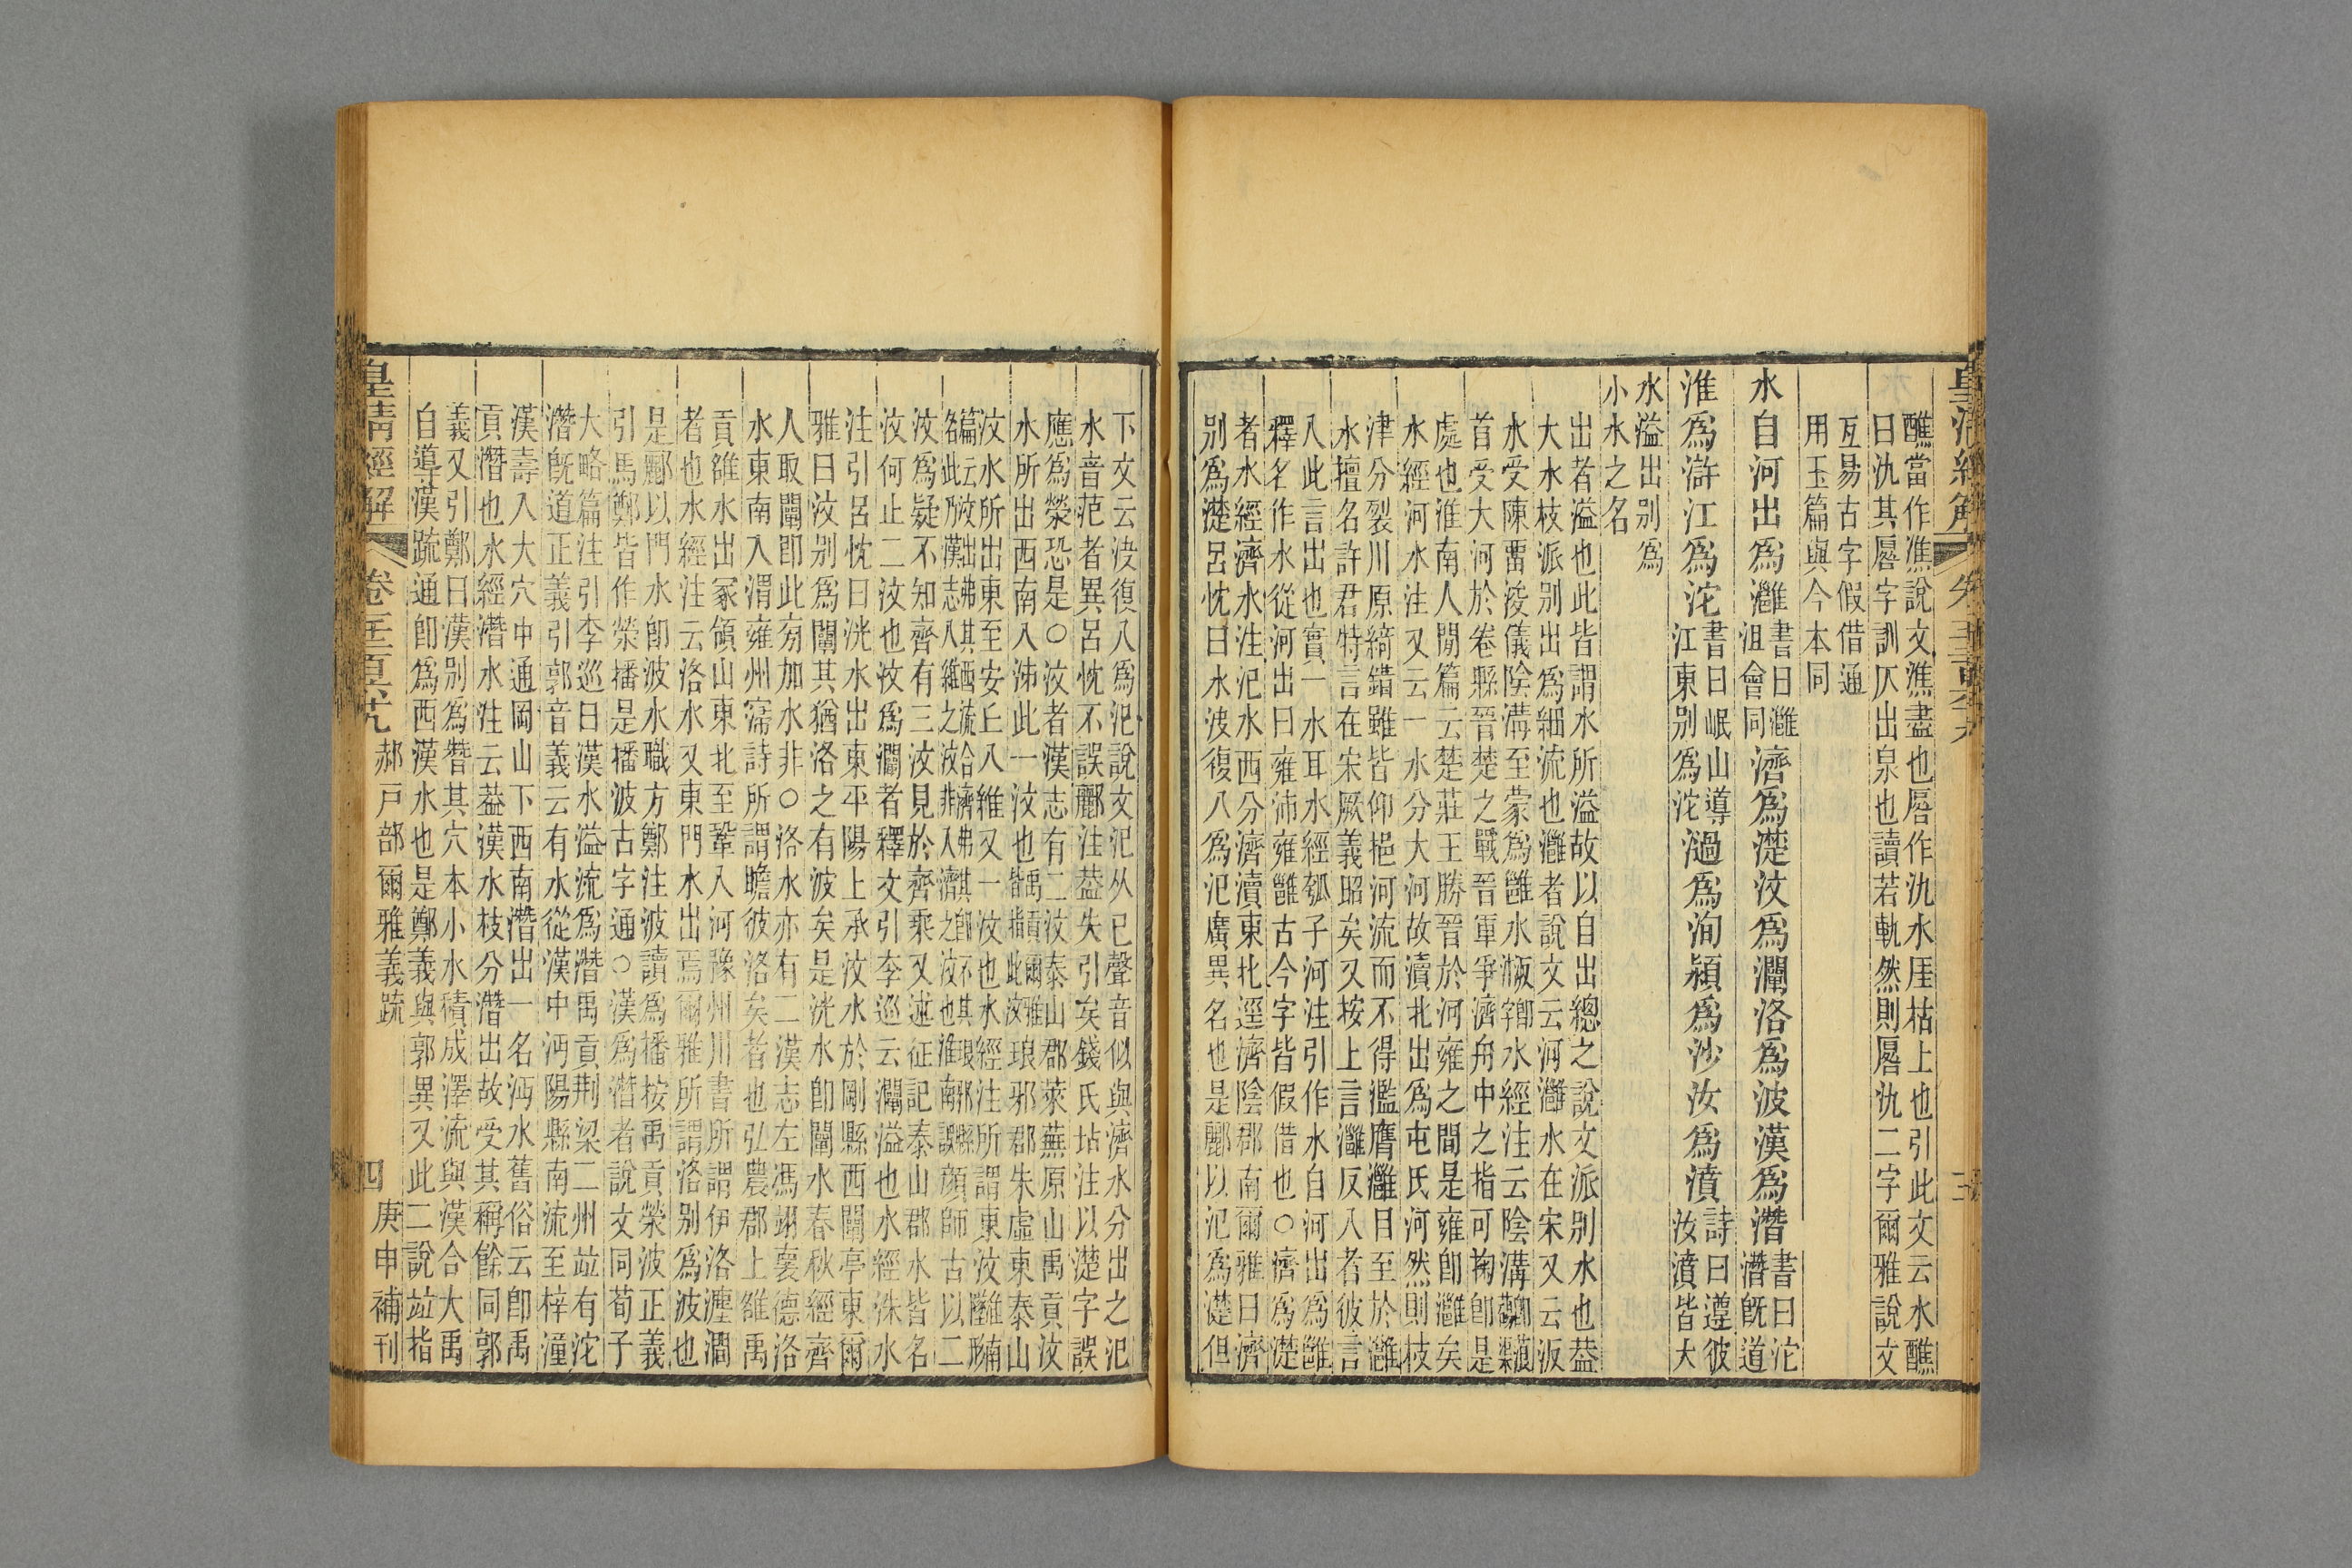 皇清經解 卷五百六十九
醮當作潐說文潐盡也厬作氿水厓枯上也引此文云水醮
曰氿其厬字訓仄出泉也讀若軌然則厬氿二字爾雅說文
互易古字假借通
用玉篇與今本同
水自河出爲灉
書曰灉
沮會同
濟爲濋汶爲瀾洛爲波漢爲潛
書曰沱
潛既道
淮爲滸江爲沱
書曰岷山導
江東別爲沱
濄爲洵潁爲沙汝爲濆
詩曰遵彼
汝濆皆大
水溢出別爲
小水之名
出者溢也此皆謂水所溢故以自出總之說文派別水也葢
大水枝派別出爲細流也灉者說文云河灉水在宋又云汳
水受陳畱浚儀陰溝至蒙爲雝水汳卽水經注云陰溝卽蒗蕩渠
首受大河於卷縣晉楚之戰晉軍爭濟舟中之指可掬卽是
處也淮南人閒篇云楚莊王勝晉於河雍之間是雍卽灉矣
水經河水注又云一水分大河故瀆北出爲屯氏河然則枝
津分裂川原綺錯雖皆仰挹河流而不得濫膺灉目至於灉
水擅名許君特言在宋厥義昭矣又按上言灉反入者彼言
入此言出也實一水耳水經瓠子河注引作水自河出爲雝
釋名作水從河出曰雍沛雍雝古今字皆假借也○濟爲濋
者水經濟水注氾水西分濟瀆東北逕濟陰郡南爾雅曰濟
別爲濋呂忱曰水波復入爲氾廣異名也是酈以氾爲濋但
下文云汶復入爲氾說文氾从巳聲音似與濟水分出之氾
水音范者異呂忱不誤酈注葢失引矣錢氏坫注以濋字誤
應爲滎恐是○汶者漢志有二汶泰山郡萊蕪原山禹貢汶
水所出西南入沛此一汶也禹貢爾雅皆指此汶琅邪郡朱虛東泰山
汶水所出東至安丘入維又一汶也水經注所謂東汶
汶爲疑不知齊有三汶見於齊乘又述征記泰山郡水皆名
汶何止二汶也汶爲瀾者釋文引李巡云瀾溢也水經洙水
注引呂忱曰洸水出東平陽上承汶水於剛縣西闡亭東爾
雅曰汶別爲闡其猶洛之有波矣是洸水卽闡水春秋經齊
人取闡卽此旁加水非○洛水亦有二漢志左馮翊褱德洛
水東南入渭雍州寖詩所謂瞻彼洛矣者也弘農郡上雒禹
貢雒水出冢領山東北至鞏入河豫州川書所謂伊洛瀍澗
者也水經注云洛水又東門水出焉爾雅所謂洛別爲波也
是酈以門水卽波水職方鄭注波讀爲播按禹貢滎波正義
引馬鄭皆作滎播是播波古字通○漢爲潛者說文同荀子
大略篇注引李巡曰漢水溢流爲潛禹貢荆梁二州竝有沱
潛既道正義引郭音義云有水從漢中沔陽縣南流至梓潼
漢壽入大穴中通岡山下西南潛出一名沔水舊俗云卽禹
貢潛也水經潛水注云葢漢水枝分潛出故受其稱餘同郭
義又引鄭曰漢別爲朁其穴本小水積成澤流與漢合大禹
自導漢疏通卽爲西漢水也是鄭義與郭異又此二說竝指
皇清經解 卷五百六十九 郝戶部爾雅義疏 四 庚申補刊